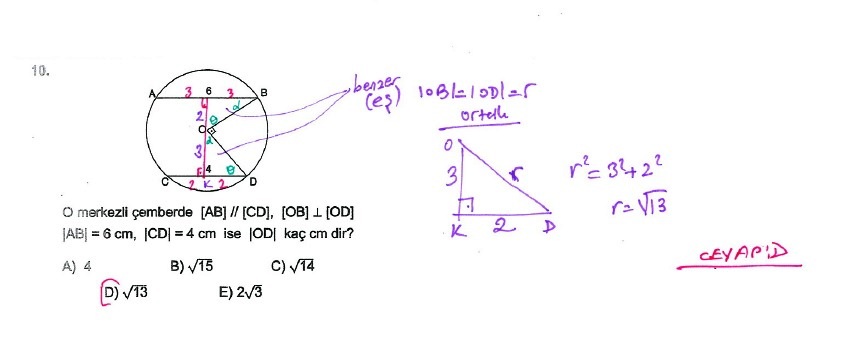 10.
A 3 6 3 B
2 α
O θ
α
3
4 θ
C 2 K 2 D
benzer
(eş)
|OB|=|OD|=r
ortak
O
3 r
K 2 D
r²=3²+2²
r=√13
O merkezli çemberde [AB] // [CD], [OB] ⊥ [OD]
|AB| = 6 cm, |CD| = 4 cm ise |OD| kaç cm dir?
A) 4 B) √15 C) √14
D) √13 E) 2√3
CEVAP:D